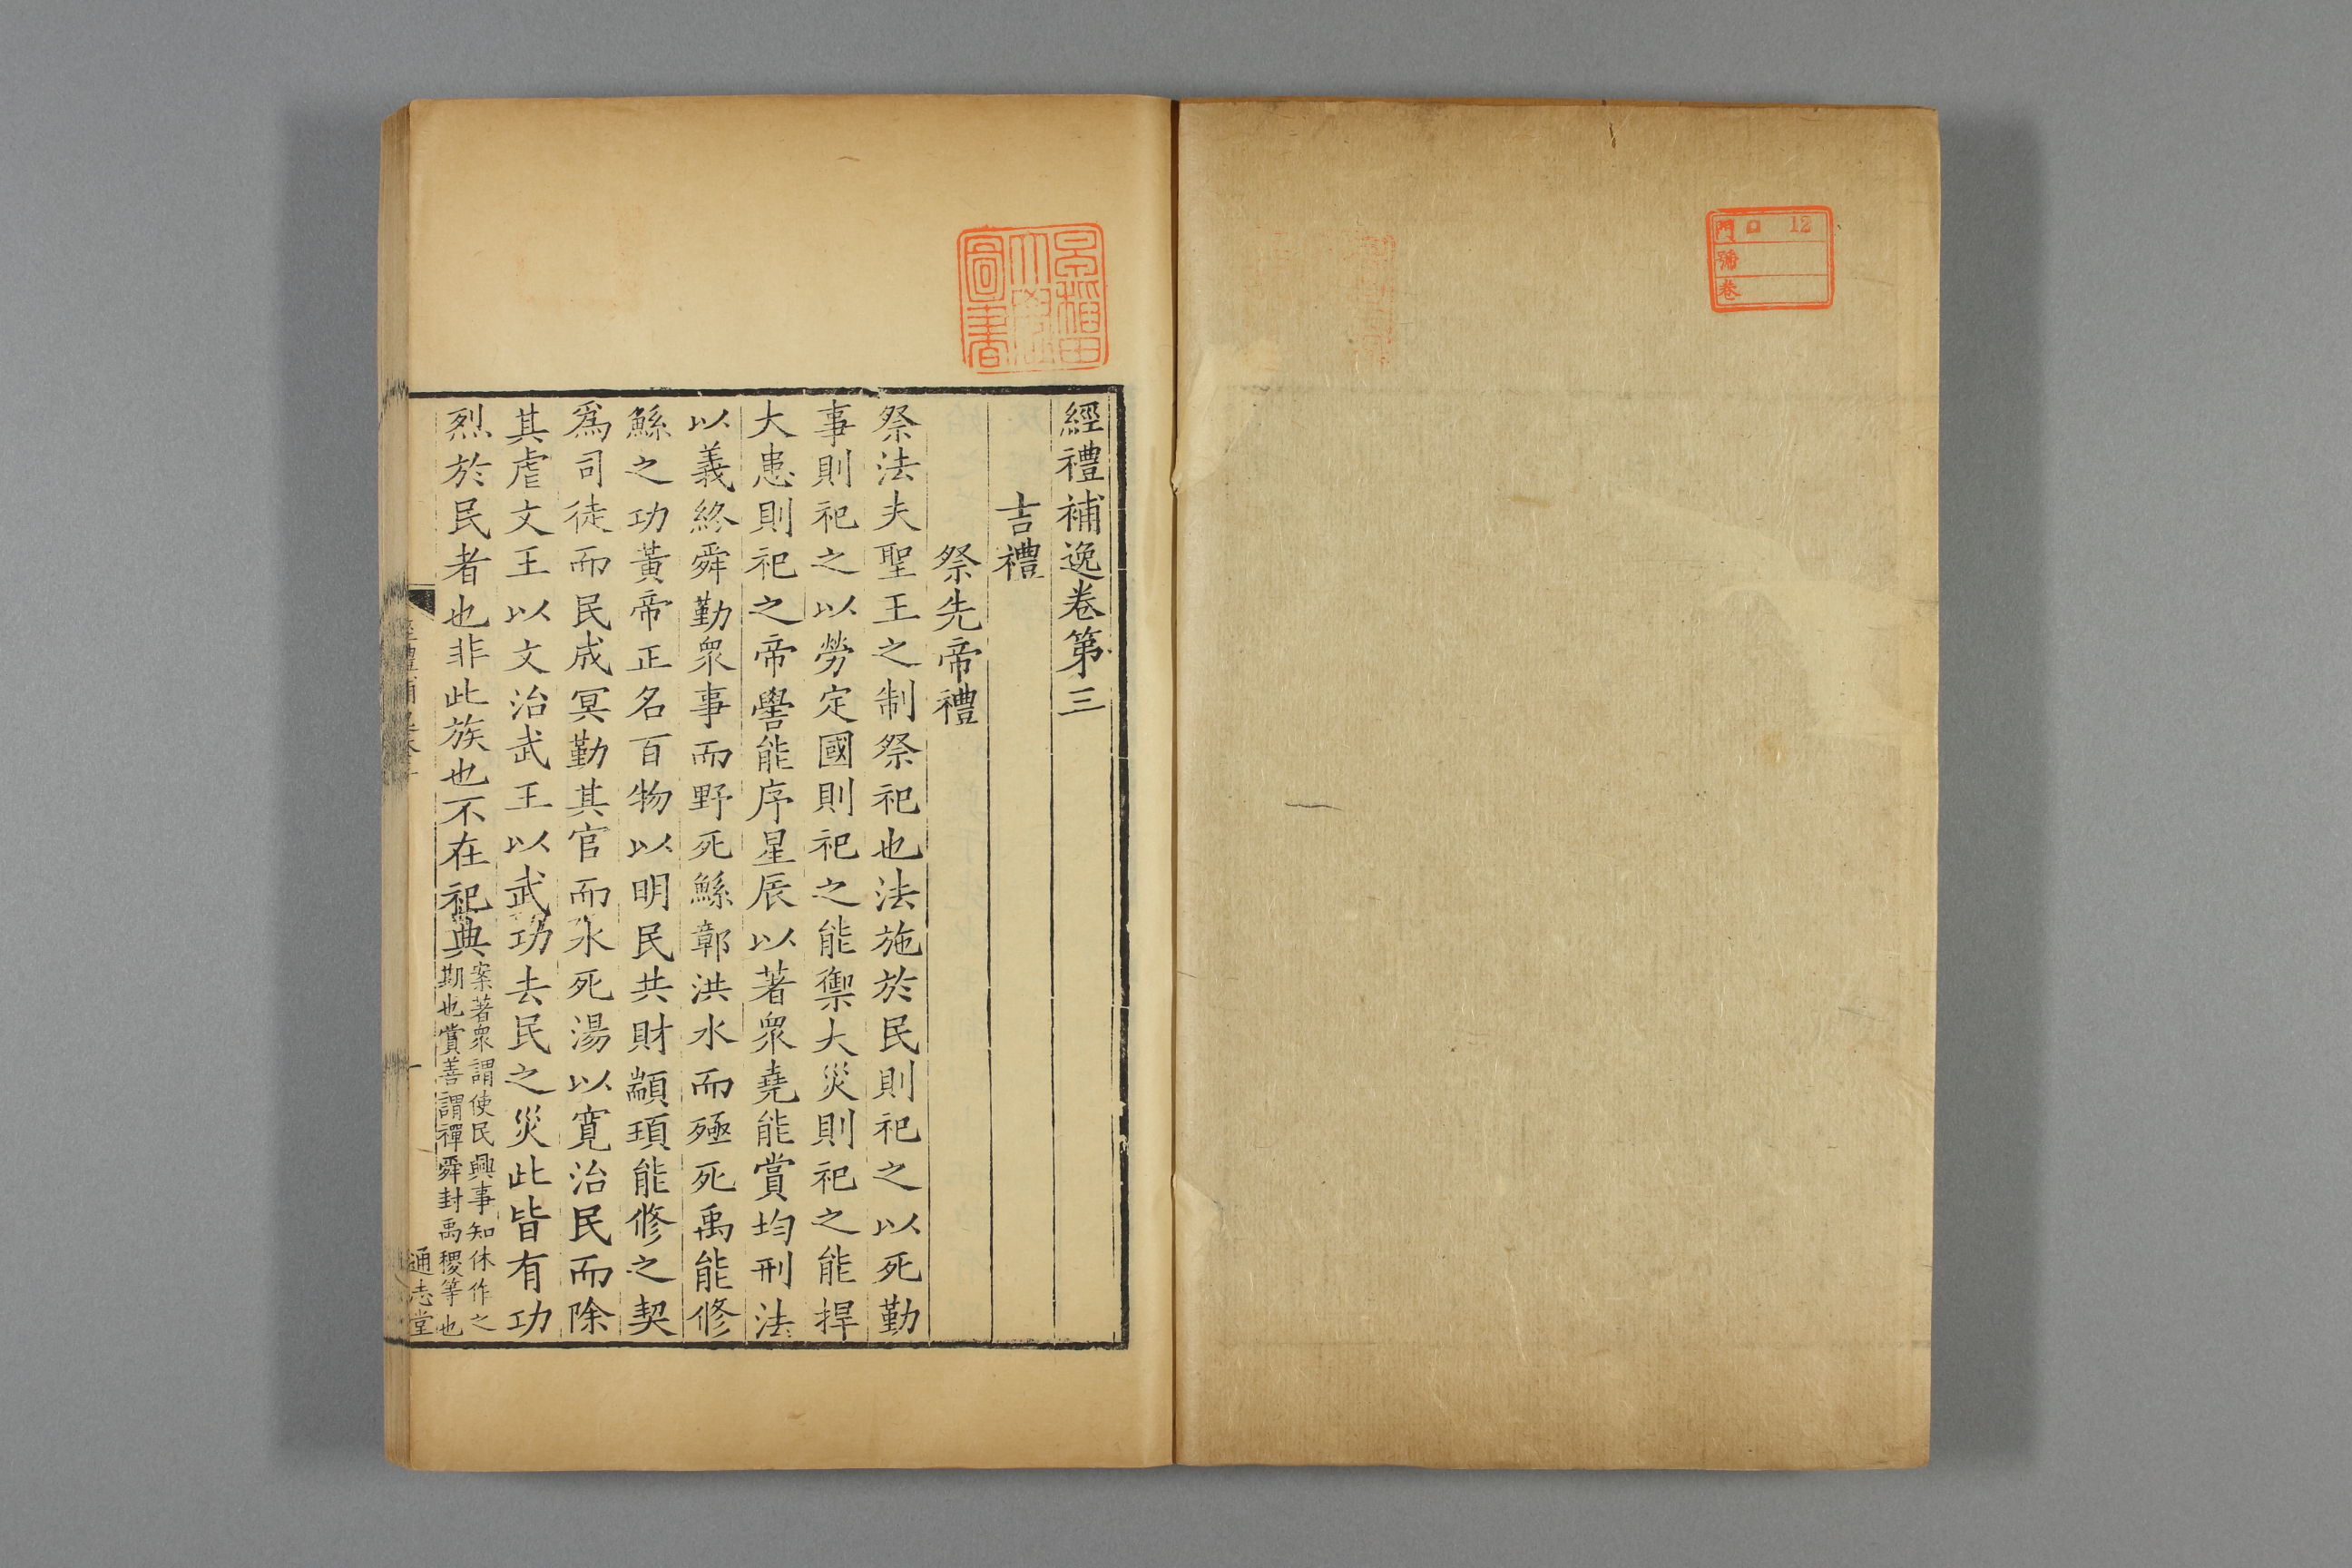 門 口 12
號
卷
早稲田
大學
圖書
經禮補逸卷第三
吉禮
祭先帝禮
祭法夫聖王之制祭祀也法施於民則祀之以死勤
事則祀之以勞定國則祀之能禦大災則祀之能捍
大患則祀之帝嚳能序星辰以著衆堯能賞均刑法
以義終舜勤衆事而野死鯀鄣洪水而殛死禹能修
鯀之功黃帝正名百物以明民共財顓頊能修之契
爲司徒而民成冥勤其官而水死湯以寬治民而除
其虐文王以文治武王以武功去民之災此皆有功
烈於民者也非此族也不在祀典案著衆謂使民興事知休作之
期也賞善謂禪舜封禹稷等也
經禮補逸卷三
一
通志堂